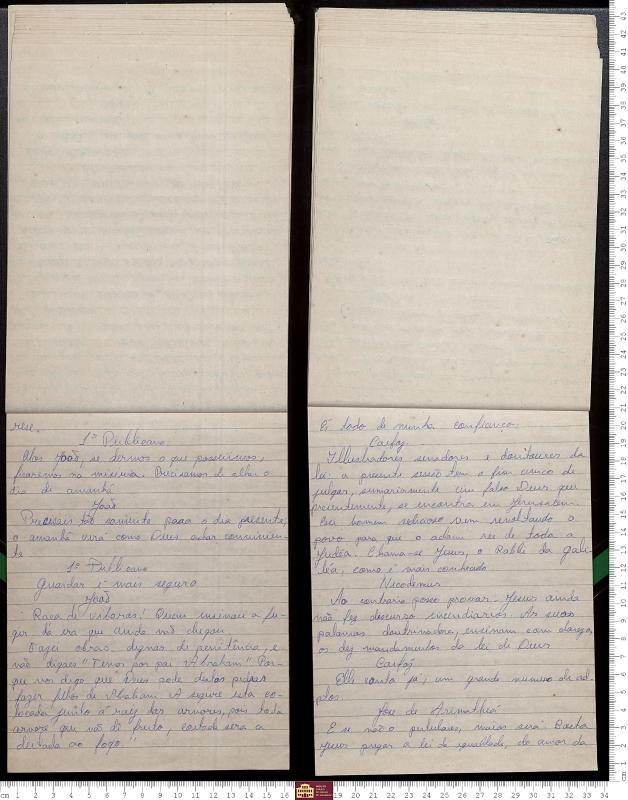 rese.
1º Publicano
Mas João, se dermos o que possuirmos,
ficaremos na miseria. Precisamos de olhar o
dia de amanhã
João
Precisais tão somente para o dia presente,
o amanhã virá como Deus achar convenien-
te
1º Publicano
Guardar é mais seguro
João
Raça de víboras! Quem ensinou a fu-
gir da ira que ainda não chegou
Fazei obras dignas de penitência, e
não digaes "Temos por pai Abraham" Por-
que vos digo que Deus pode destas pedras
fazer filhos de Abraham. A segure esta co-
locada junto á raiz das arvores, pois toda
arvore que não dê fruto, cortada será e
deitada ao fogo."
És todo de minha confiança.
Caifaz
Illustradores senadores e doutores da
lei: a presente sessão tem o fim unico de
julgar, sumariamente um falso Deus que
presentemente, se encontra em Jerusalem.
Esse homem sedicioso vem revoltando o
povo para que o aclam rei de toda a
Judéa. Chama-se Jesus, o Rabbi da gali-
léa, como é mais conhecido
Nicodemus
Ao contrario posso provar. Jesus ainda
não fez discurso incendiarios. As suas
palavras doutrinadoras, ensinam com clareza,
os dez mandamentos da lei de Deus
Caifaz
Elle conta já, um grande numero de ad-
eptos.
José de Arimathéa
E se não o perturbares, maior será. Basta
Jesus pregar a lei da igualdade, do amor da